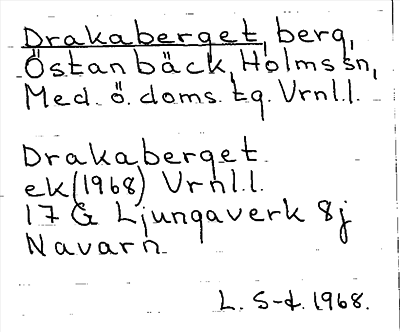 Drakaberget, berg,
Östanbäck, Holms sn,
Med. ö. doms. tg. Vrnl.l.
Drakaberget
ek (1968) Vrnl.l.
17 G Ljungaverk 8j
Navarn
L. S-t. 1968.